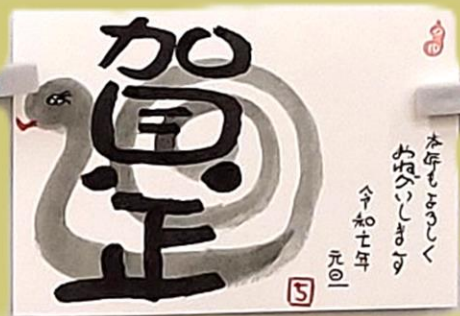 賀正
本年もよろしく
おねがいします
令和七年
元旦
ち